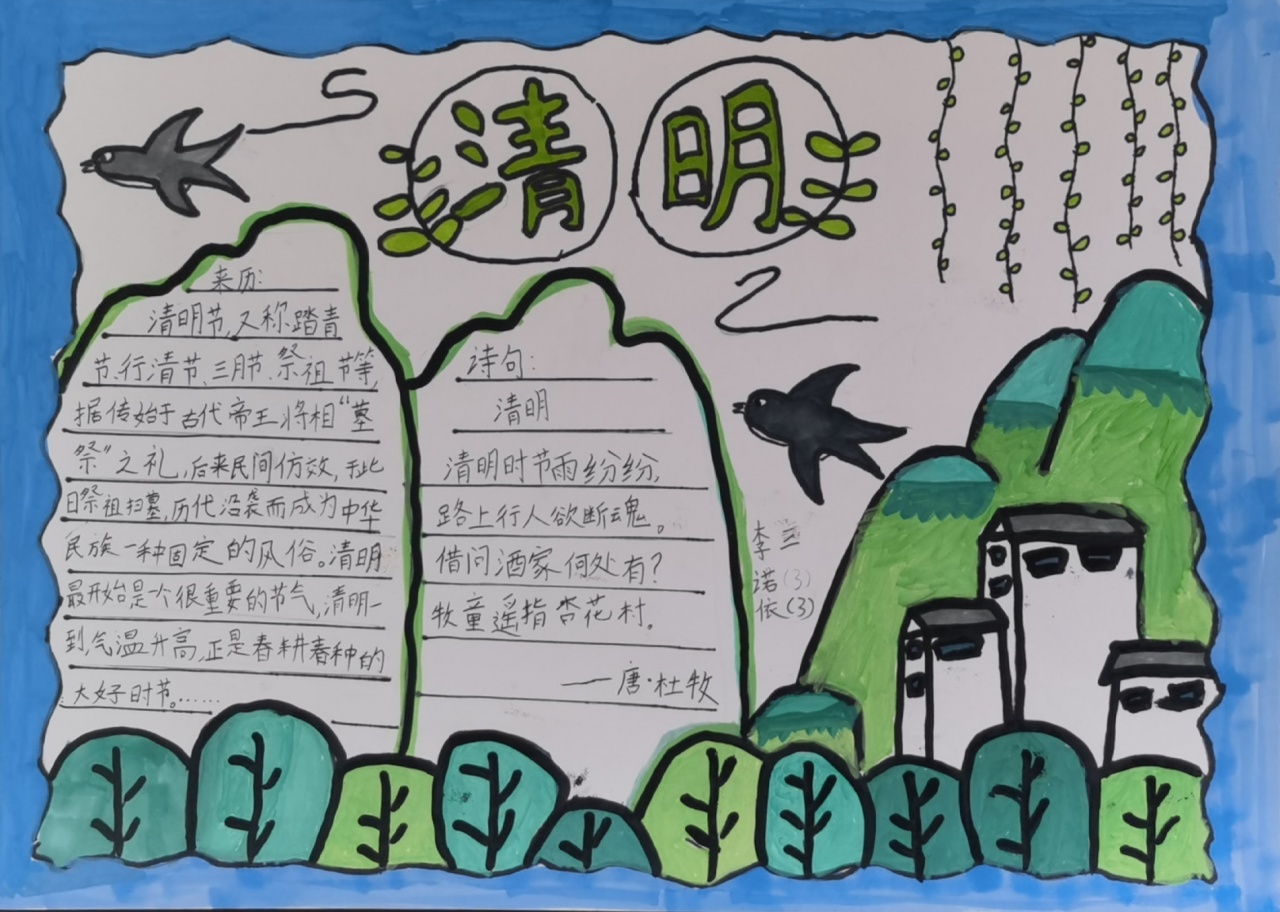 清明
来历:
清明节,又称踏青
节、行清节、三月节、祭祖节等,
据传始于古代帝王将相“墓
祭”之礼,后来民间仿效,于此
日祭祖扫墓,历代沿袭而成为中华
民族一种固定的风俗。清明
最开始是一个很重要的节气,清明一
到气温升高,正是春耕春种的
大好时节。……
诗句:
清明
清明时节雨纷纷,
路上行人欲断魂。
借问酒家何处有?
牧童遥指杏花村。
——唐·杜牧
李三
诺(3)
依(3)